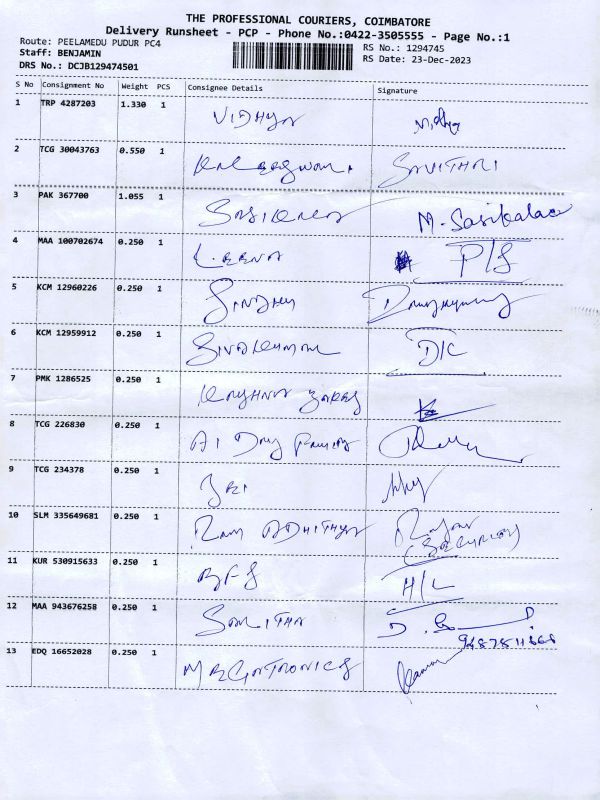 THE PROFESSIONAL COURIERS, COIMBATORE
Delivery Runsheet - PCP - Phone No.:0422-3505555 - Page No.:1
Route: PEELAMEDU PUDUR PC4 RS No.: 1294745
Staff: BENJAMIN RS Date: 23-Dec-2023
DRS No.: DCJB129474501
S No Consignment No Weight PCS Consignee Details Signature
1 TRP 4287203 1.330 1 VIDHYA Vidhya
2 TCG 30043763 0.550 1 SAVITHRI
3 PAK 367700 1.055 1 SASIKALA M. Sasikalaa
4 MAA 100702674 0.250 1 LEENA P/S
5 KCM 12960226 0.250 1 SINDHU
6 KCM 12959912 0.250 1 SIVAKUMAR D/C
7 PMK 1286525 0.250 1
8 TCG 226830 0.250 1
9 TCG 234378 0.250 1 SRI
10 SLM 335649681 0.250 1 RAM ADHITHYA
(SECURITY)
11 KUR 530915633 0.250 1 BFS H/L
12 MAA 943676258 0.250 1
13 EDQ 16652028 0.250 1